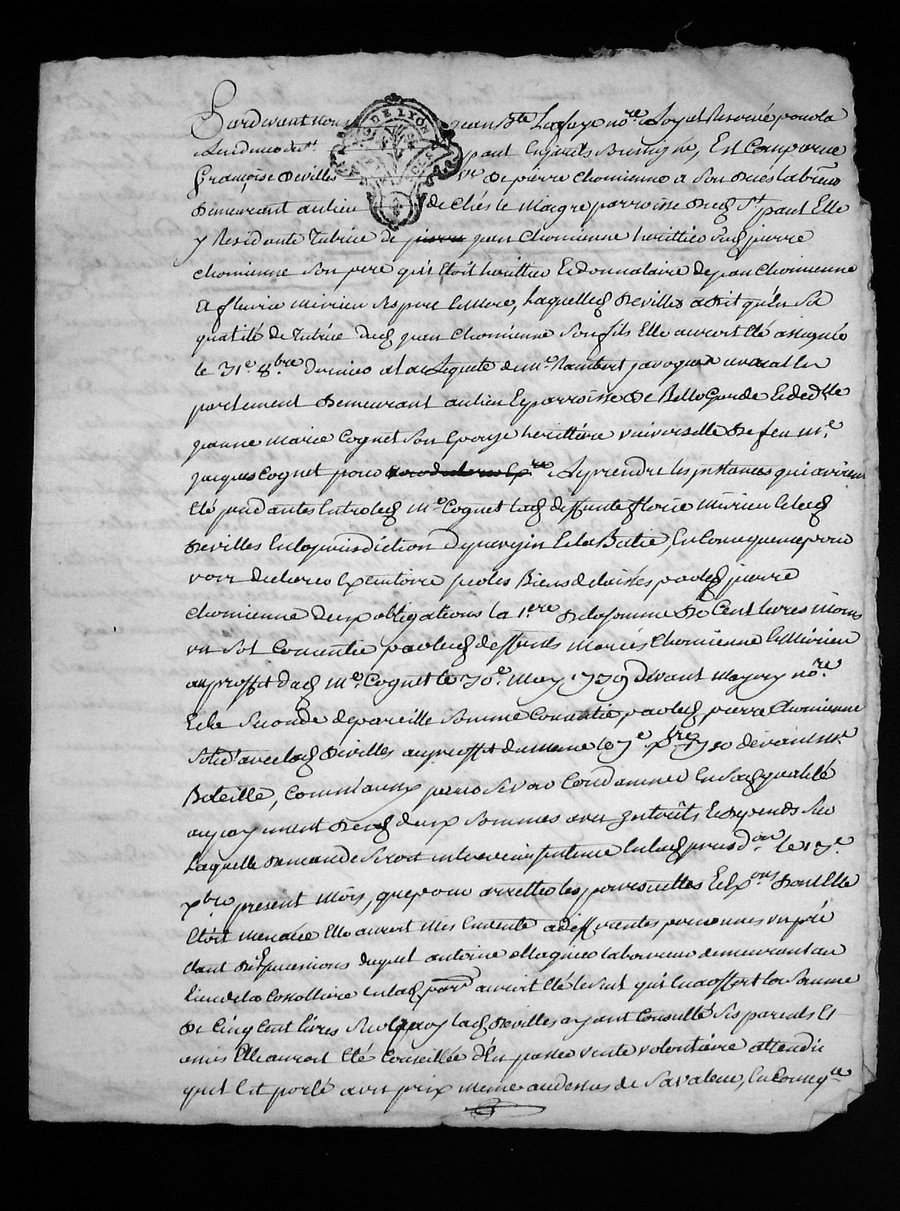 Pardevant nous Jean Bte Lafay nore Royal Reservé pour la
Residence de St paul En Jarets soussigné, Est Comparue
françoise Devilles ve de pierre Chomienne a Son Deces laboureur
Demeurant au lieu de Ches le Maigre parroisse dud St paul Elle
y Residante Tutrice de pierre jean Chomienne herittier dud pierre
Chomienne Son pere qui Etoit herittier Et donnataire de jean Chomienne
Et fleurie Mirieu Ses pere Et Mere, Laquelled Devilles a dit qu'en Sa
qualité de Tutrice dud jean Chomienne Son fils Elle auroit Eté assignée
le 31e 8bre dernier a la Requete de Mre Rambert javogue avocat En
parlement Demeurant au lieu Et parroisse de Belle Garde Et de dlle
jeanne Marie Cognet Son Epouse herittiere universelle de feu Me
jacques Cognet pour Reprendre les jnstances qui avoient
Eté pendantes Entre led Me Cognet lad deffunte florie Mirieu Et lad
Devilles En la jurisdiction de Et la Batie, En Consequence pour
voir declarer Exécutoire sur les Biens delaissés par led pierre
Chomienne deux obligations la 1ere de la somme de Cent livres moins
un Sol Consentie par lesd deffunts Mariés Chomienne Et Mirieu
au proffit dud Me Cognet le 30e May devant nore
Et la Seconde de pareille Somme Consentie par led pierre Chomienne
Solidt avec lad Devilles au proffit du meme le devant Me
Boteille, Comm'aussy pour Se voir Condamner En Sad qualité
au payement desd deux Sommes avec jnterêts Et depends Sur
Laquelle demande Seroit intervenu Sentence En lad jurisdon le
xbre present Mois, que pour arretter les poursuittes Et Exons dont Elle
Etoit Menacée Elle auroit Mis En vente a differantes personnes un pré
dont Expressions duquel antoine Magnier laboureur demeurant au
lieu de la En lad parse auroit Eté le Seul qui En a offert la Somme
de Cinq Cent livres Sur Quoy lad Devilles ayant Consulté Ses parents Et
amis Elle auroit Eté Conseillée d'En passer vente volontaire attendu
quil Est porté a un prix meme au dessus de Sa valeur, En Conseqce